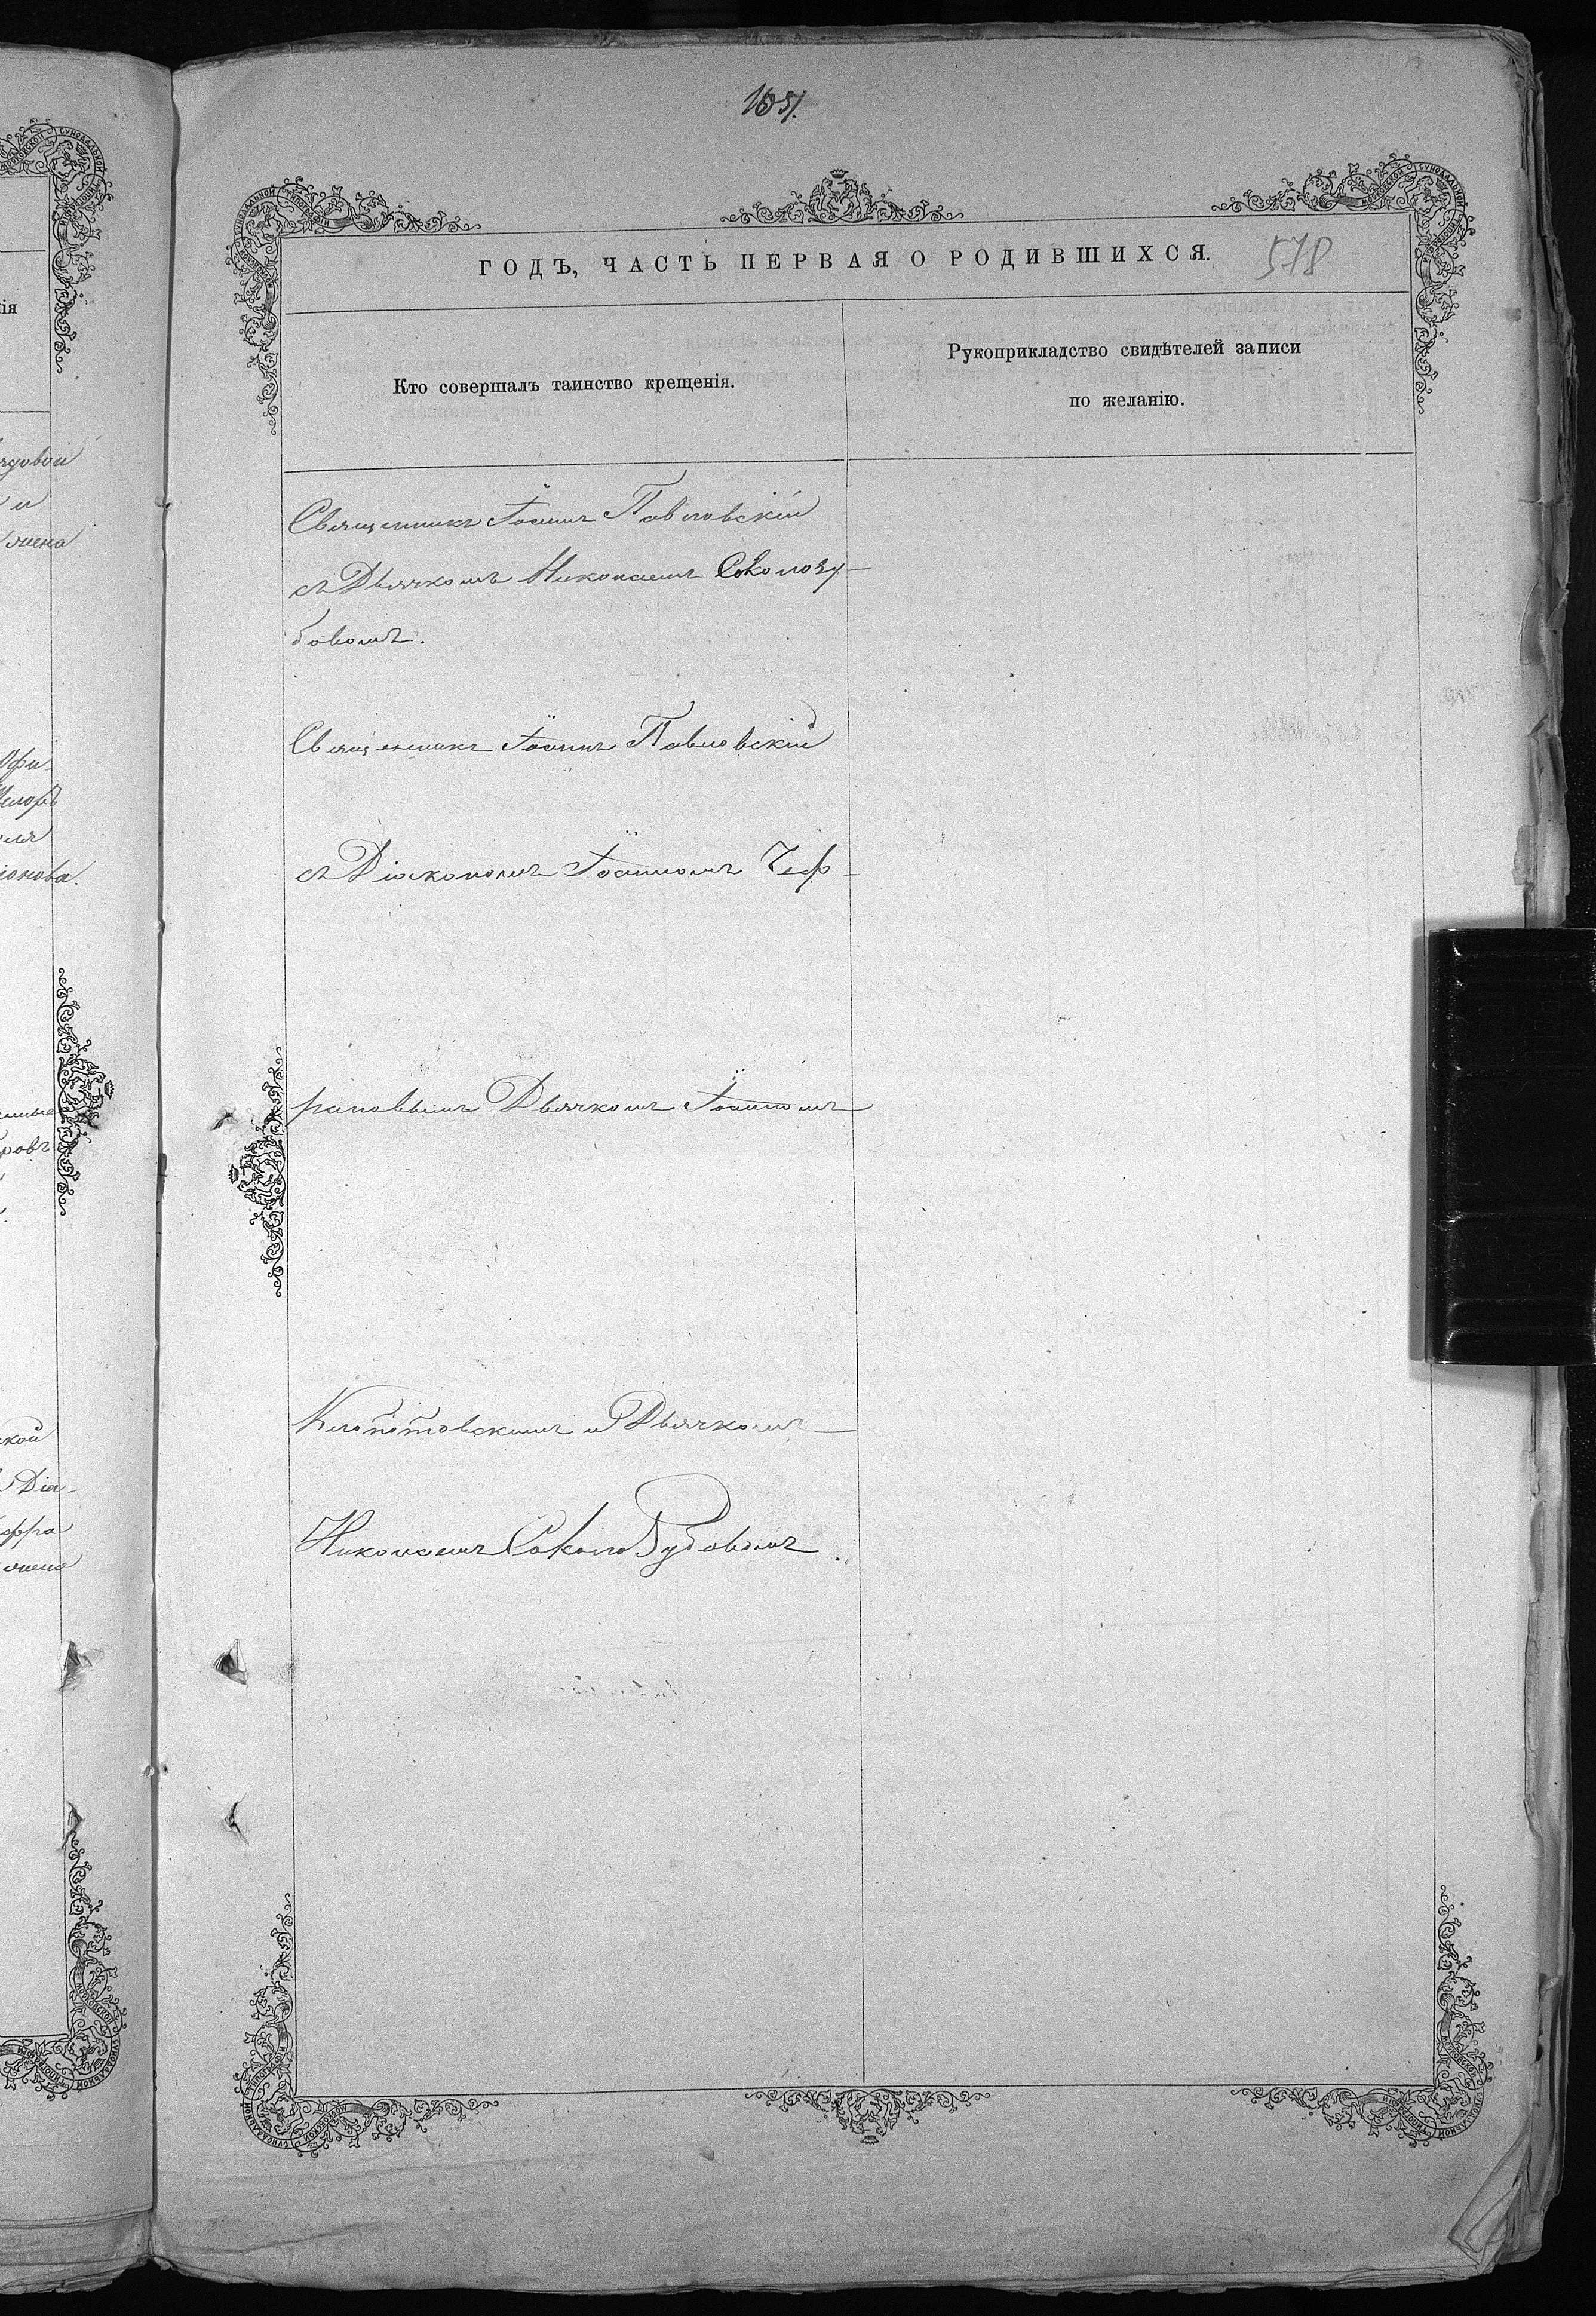 1651.
ГОДЪ, ЧАСТЬ ПЕРВАЯ О РОДИВШИХСЯ. 578
Кто совершалъ таинство крещенія.
Рукоприкладство свидѣтелей записи
по желанію.
Священникъ Іоаннъ Павловскій
съ Дьячкомъ Николаемъ Соколозу-
бовомъ.
Священникъ Іоаннъ Павловскій
съ Діакономъ Іоанномъ Чеф-
рановымъ Дьячкомъ Іоанномъ
Клопотовскимъ и Дьячкомъ
Николаемъ Соколозубовомъ.
ія
іонова.
ровъ
ской
Діа-
фра